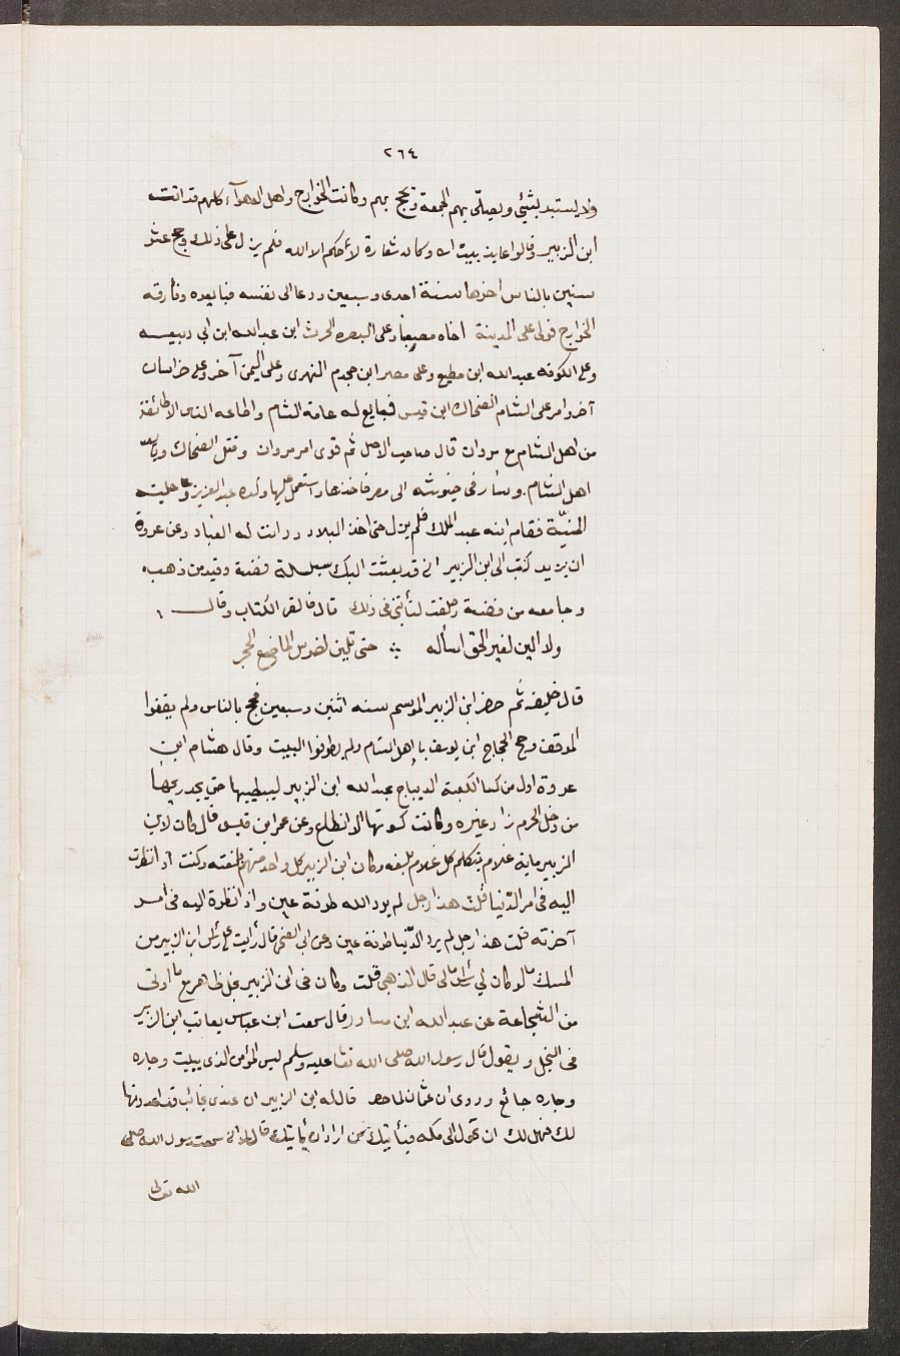 ٢٦٤
ولا يستبد بشئ ويصلى بهم الجمعة ويحج بهم وكانت الخوارج واهل الاهوآء كلهم قد اتت
ابن الزبير وقالوا عايذ بيت الله وكان شعاره لا حكم الا لله فلم يزل على ذلك وحج عشر
سنين بالناس اخرها سنة احدى وسبعين ودعا الى نفسه فبايعوه وفارقه
الخوارج فولى على المدينة اخاه مصعبا وعلى البصره الحرث ابن عبدالله ابن ابى ربيعه
وعلى الكوفه عبدالله ابن مطيع وعلى مصر ابن جحدم الفهرى وعلى اليمن آخر وعلى خراسان
آخر وامر على الشام الضحاك ابن قيس فبايع له عامة الشام واطاعه الناس الا طائفة
من اهل الشام مع مروان قال صاحب الاصل ثم قوى امر مروان وقتل الضحاك وبايعه
اهل الشام وسار فى جيوشه الى مصر فاخذها واستعمل عليها ولده عبد العزيز وعاجلته
المنيّة فقام ابنه عبد الملك فلم يزل حتى اخذ البلاد ودانت له العباد وعن عروة
ان يزيد كتب الى ابن الزبير انى قد بعثت اليك سلسلة فضة وقيد من ذهب
وجامعه من فضة وحلفت لتأتينى فى ذلك قال فالقى الكتاب وقال
ولا الين لغير الحق اساله ∴ حتى تلين لضرس الماضغ الحجر
قال خليفه ثم حضر ابن الزبير الموسم سنه اثنين وسبعين فحج بالناس ولم يقفوا
الموقف وحج الحجاج ابن يوسف باهل الشام ولم يطوفوا البيت وقال هشام ابن
عروة اول من كسا الكعبة الديباج عبدالله ابن الزبير ليطيبها حتى يجد ريحها
من دخل الحرم زاد غيره وكانت كسوتها الانطاع وعن عمر ابن قيس قال كان لابن
الزبير ماية غلام يتكلم كل غلام بلغه وكان ابن الزبير كل واحد منهم بلغته وكنت اذا نظرت
اليه فى امر الدنيا قلت هذا رجل لم يرد الله طرفة عين واذا نظرة اليه فى امر
آخرته قلت هذا رجل لم يرد الدنيا طرفة عين وعن ابى الضحى قال رايت على راس ابن الزبير من
المسك ما لو كان لي راس مالى قال الذهبى قلت وكان فى ابن الزبير بخل ظاهر مع ما اوتى
من الشجاعة عن عبدالله ابن مساور قال سمعت ابن عباس يعاتب ابن الزبير
فى البخل ويقول قال رسول الله صلى الله تعا عليه وسلم ليس المؤمن الذى يبيت وجاره
وجاره جائع وروى ان عثمان لما حصر قال له ابن الزبير ان عندى نجائب قد اعددتها
لك فهل لك ان تحول الى مكه فيأتيك من اراد ان يأتيك قال لا انى سمعت رسول الله صلى
الله تعالى